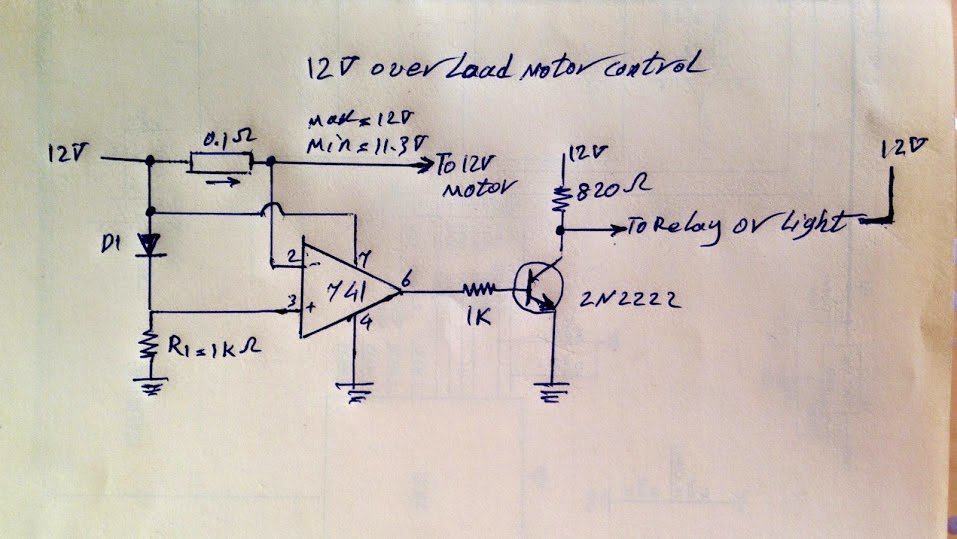 12V overLoad Motor control
0.1Ω
Max = 12V
Min = 11.3V
12V
To 12V
Motor
12V
820Ω
12V
To Relay or Light
D1
2 -
7
741
6
3 +
4
1K
2N2222
R1 = 1KΩ